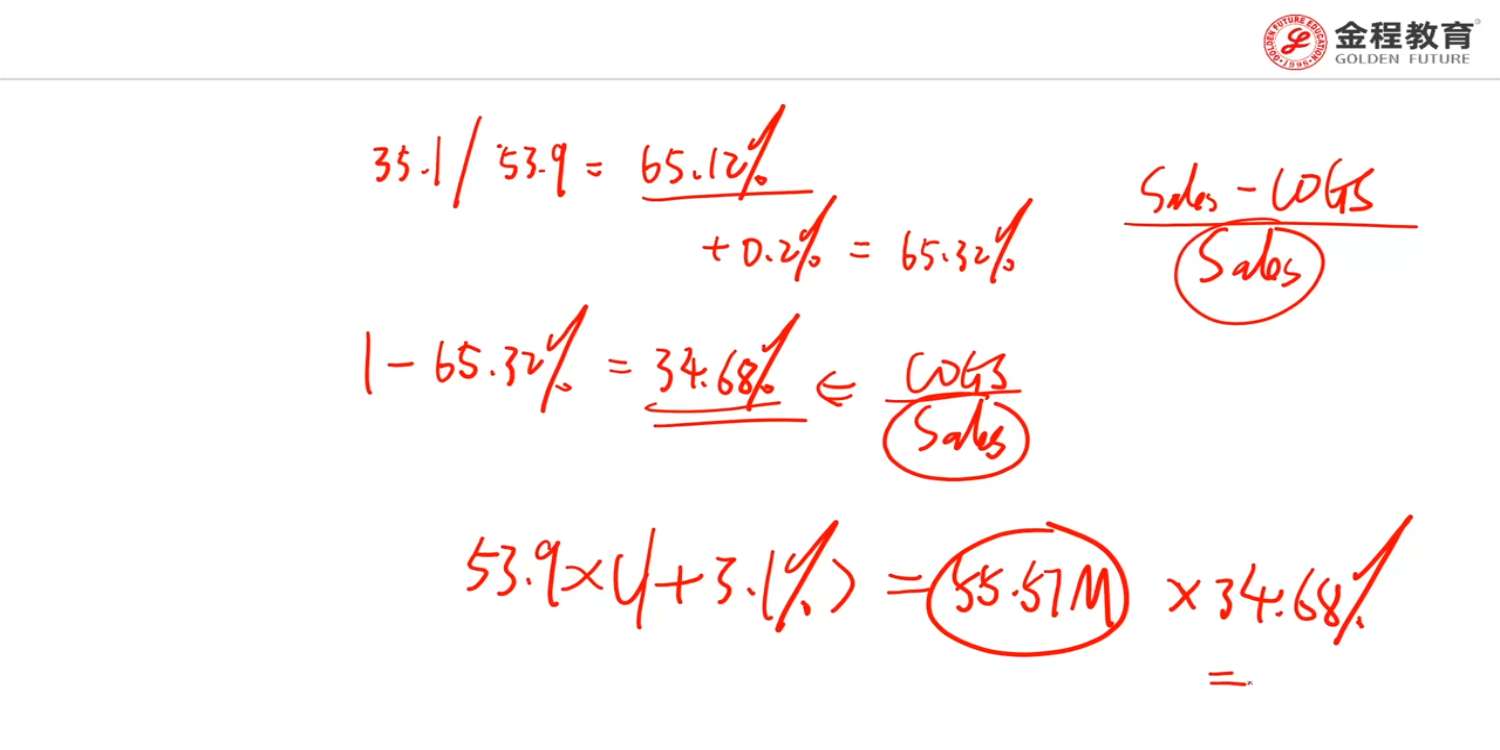 金程教育
GOLDEN FUTURE
GOLDEN FUTURE EDUCATION
·1996·
35.1/53.9 = 65.12%
+0.2% = 65.32%
Sales - COGS
Sales
1 - 65.32% = 34.68% ⇐ COGS
Sales
53.9×(1+3.1%) = 55.57M ×34.68%
=